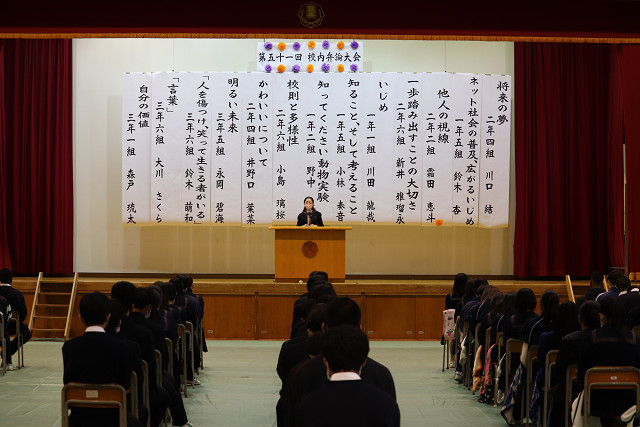 第五十一回 校内弁論大会
将来の夢
二年四組 川口 結
ネット社会の普及、広がるいじめ
一年五組 鈴木 杏
他人の視線
二年二組 霜田 恵斗
一歩踏み出すことの大切さ
二年六組 新井 雅瑠永
いじめ
一年一組 川田 龍哉
知ること、そして考えること
一年五組 小林 奏音
知ってください動物実験
一年二組 野中
校則と多様性
二年六組 小島 璃桜
かわいいについて
二年四組 井野口 葉菜
明るい未来
三年五組 永岡 碧海
「人を傷つけ、笑って生きる者がいる」
三年六組 鈴木 萌和
「言葉」
三年六組 大川 さくら
自分の価値
三年一組 森戸 琉太